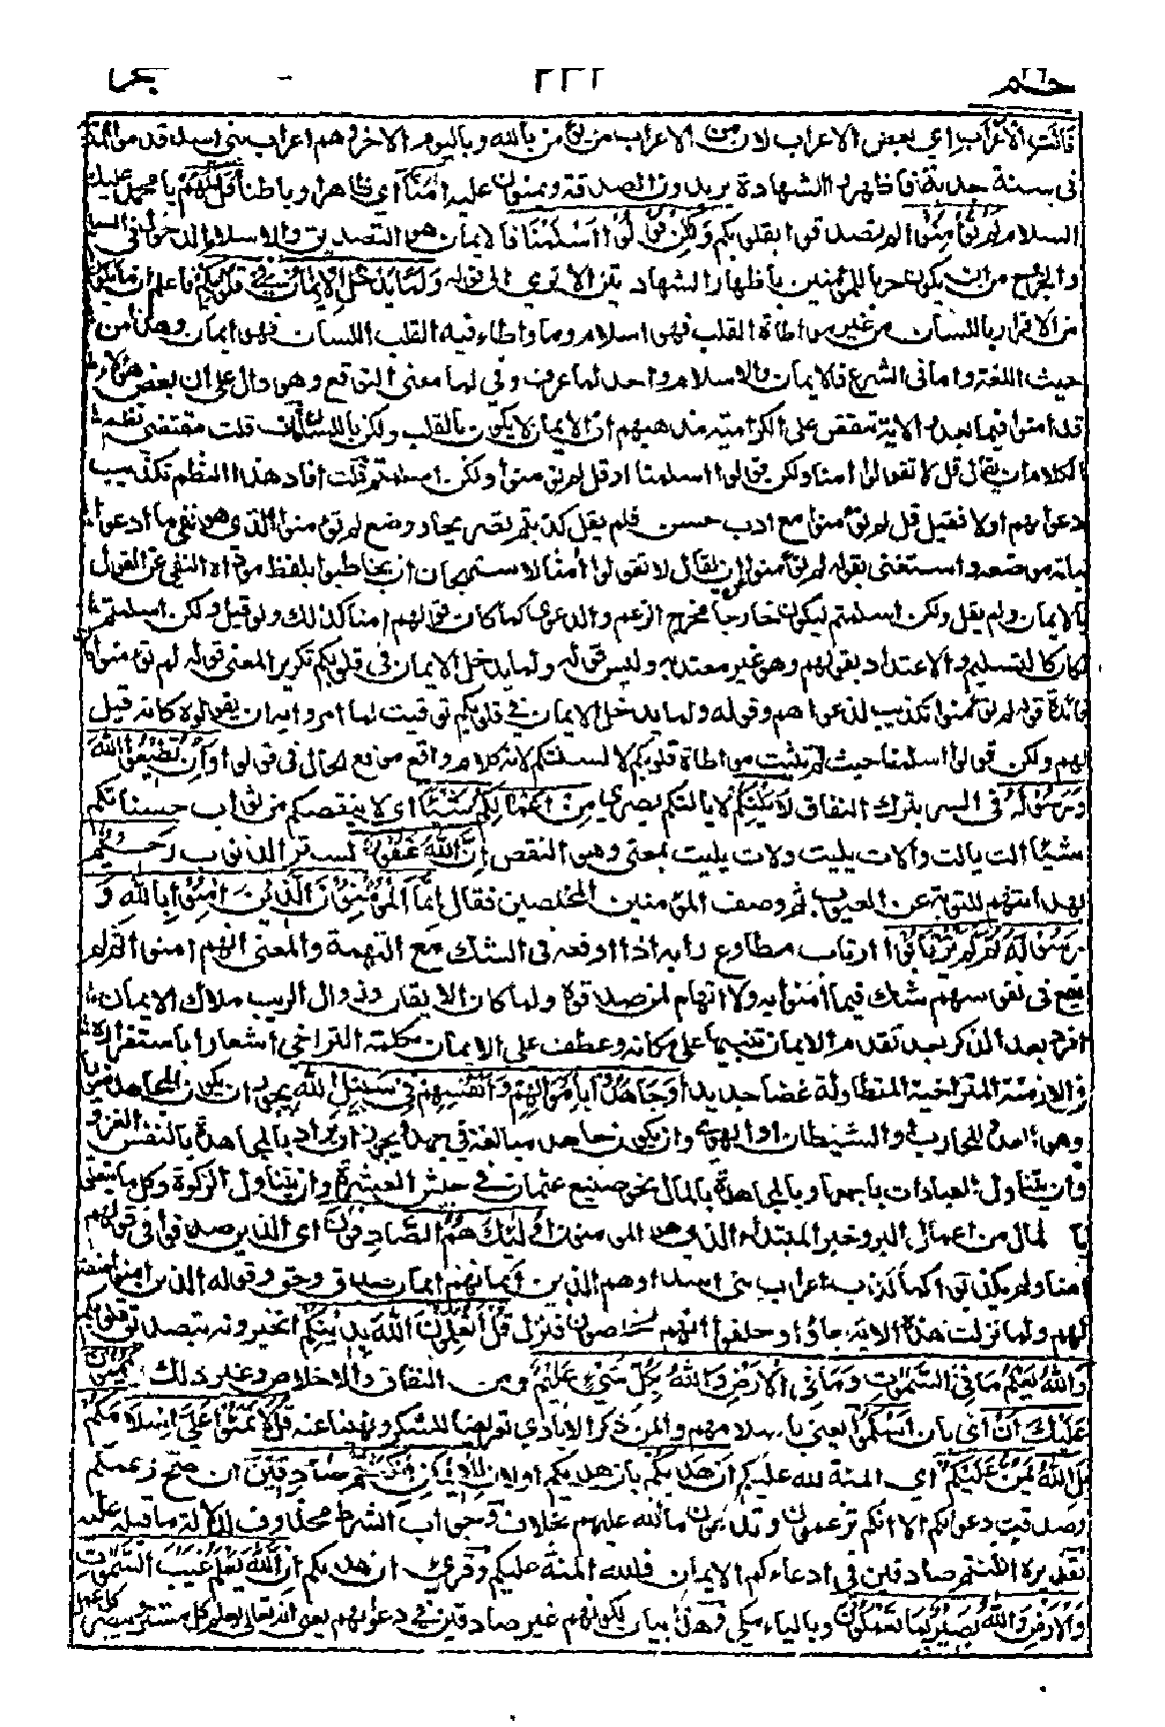 حم ٢٦ ٢٣٢ حجرات
قَالَتِ الْأَعْرَابُ اي بعض الاعراب لان من الاعراب من يؤمن بالله وباليوم الاخر وهم اعراب بنى اسد قدموا المدينة
فى سنة جدبة فاظهروا الشهادة يريدون الصدقة ويمنون عليه اٰمَنَّا اي ظاهرا وباطنا قُلْ لهم يا محمد عليك
السلام لَمْ تُؤْمِنُوا لم تصدقوا بقلوبكم وَلٰكِنْ قُولُوا اَسْلَمْنَا فالايمان هو التصديق والاسلام الدخول فى السلم
والخروج من ان يكون حربا للمؤمنين باظهار الشهادتين الا ترى الى قوله وَلَمَّا يَدْخُلِ الْاِيْمَانُ فِيْ قُلُوْبِكُمْ فاعلم ان ما يكون
من الاقرار باللسان من غير مواطاة القلب فهو اسلام وما واطاء فيه القلب اللسان فهو ايمان وهذا من
حيث اللغة واما فى الشرع فالايمان والاسلام واحد لما عرف وفى لما معنى التوقع وهو دال على ان بعض هؤلاء
قد امنوا فيما بعد والاية تنقض على الكرامية مذهبهم ان الايمان لا يكون بالقلب ولكن باللسان فان قلت مقتضى نظم
الكلام ان يقال قل لا تقولوا امنا ولكن قولوا اسلمنا او قل لم تؤمنوا ولكن اسلمتم قلت افاد هذا النظم تكذيب
دعواهم اولا فقيل قل لم تؤمنوا مع ادب حسن فلم يقل كذبتم تصريحا ووضع لم تؤمنوا الذى هو نفى ما ادعوا
اثباته موضعه واستغنى بقوله لم تؤمنوا ان يقال لا تقولوا امنا لاستهجان ان يخاطبوا بلفظ موداه النهى عن القول
بالايمان ولم يقل ولكن اسلمتم ليكون خارجا مخرج الزعم والدعوى كما كان قولهم امنا كذلك ولو قيل ولكن اسلمتم
لكان كالتسليم والاعتداد بقولهم وهو غير معتد به وليس قوله ولما يدخل الايمان فى قلوبكم تكرير المعنى قوله لم تؤمنوا
فان فائدة قوله لم تؤمنوا تكذيب لدعواهم وقوله ولما يدخل الايمان فى قلوبكم توقيت لما امروا به ان يقولوه كانه قيل
لهم ولكن قولوا اسلمنا حيث لم تثبت مواطاة قلوبكم لالسنتكم لانه كلام واقع موقع الحال فى قولوا وَاِنْ تُطِيْعُوا اللّٰهَ
وَرَسُوْلَهٗ فى السر بترك النفاق لَا يَلِتْكُمْ لا يالتكم بصرى مِنْ اَعْمَالِكُمْ شَيْئًا اى لا ينقصكم من ثواب حسناتكم
شيئا الت يالت والات يليت ولات يليت بمعنى وهو النقص اِنَّ اللّٰهَ غَفُوْرٌ لستر الذنوب رَحِيْمٌ
بهدايتهم للتوبة عن العيوب ثم وصف المؤمنين المخلصين فقال اِنَّمَا الْمُؤْمِنُوْنَ الَّذِيْنَ اٰمَنُوْا بِاللّٰهِ وَ
رَسُوْلِهٖ ثُمَّ لَمْ يَرْتَابُوْا ارتاب مطاوع رابه اذا اوقعه فى الشك مع التهمة والمعنى انهم امنوا ثم لم
يقع فى نفوسهم شك فيما امنوا به ولا اتهام لمن صدقوه ولما كان الايقان وزوال الريب ملاك الايمان
افرد بعد الذكر بعد تقدم الايمان تنبيها على مكانه وعطف على الايمان بكلمة التراخى اشعارا باستقراره
فى الازمنة المتراخية المتطاولة غضا جديدا وَجَاهَدُوْا بِاَمْوَالِهِمْ وَاَنْفُسِهِمْ فِىْ سَبِيْلِ اللّٰهِ يجوز ان يكون المجاهد منويا
وهو العدو المحارب او الشيطان او الهوى وان يكون جاهد مبالغة فى جهد ويجوز ان يراد بالمجاهدة بالنفس الغزو
وان يتناول العبادات باجمعها وبالمجاهدة بالمال نحو صنيع عثمان فى جيش العسرة وان يتناول الزكوة وكل ما يتعلق
بالمال من اعمال البر وخبر المبتداء الذى هو المؤمنون اُولٰئِكَ هُمُ الصَّادِقُوْنَ اى الذين صدقوا فى قولهم
امنا ولم يكذبوا كما كذب اعراب بنى اسد او هم الذين ايمانهم ايمان صدق وحق وقوله الذين امنوا صفة
لهم ولما نزلت هذه الاية جاؤا وحلفوا انهم مخلصون فنزل قُلْ اَتُعَلِّمُوْنَ اللّٰهَ بِدِيْنِكُمْ اتخبرونه بتصديق قلوبكم
وَاللّٰهُ يَعْلَمُ مَا فِى السَّمٰوٰتِ وَمَا فِى الْاَرْضِ وَاللّٰهُ بِكُلِّ شَىْءٍ عَلِيْمٌ ومن النفاق والاخلاص وغير ذلك يَمُنُّوْنَ
عَلَيْكَ اَنْ اى بان اَسْلَمُوْا يعنى باسلامهم والمن ذكر الايادى تعريضا للشكر ونهينا عنه قُلْ لَا تَمُنُّوْا عَلَىَّ اِسْلَامَكُمْ
بَلِ اللّٰهُ يَمُنُّ عَلَيْكُمْ اى المنة لله عليكم اَنْ هَدٰىكُمْ بان هديكم او لان لِلْاِيْمَانِ اِنْ كُنْتُمْ صَادِقِيْنَ ان صح زعمكم
وصدقت دعواكم الا انكم تزعمون وتدعون ما الله عليم بخلافه وجواب الشرط محذوف لدلالة ما قبله عليه
تقديره ان كنتم صادقين فى ادعاءكم الايمان فلله المنة عليكم وقرئ ان هديكم اِنَّ اللّٰهَ يَعْلَمُ غَيْبَ السَّمٰوٰتِ
وَالْاَرْضِ وَاللّٰهُ بَصِيْرٌ بِمَا تَعْمَلُوْنَ وبالياء مكى وهذا بيان لكونهم غير صادقين فى دعواهم يعنى انه تعالى يعلم كل مستتر ويبصر كل عمل